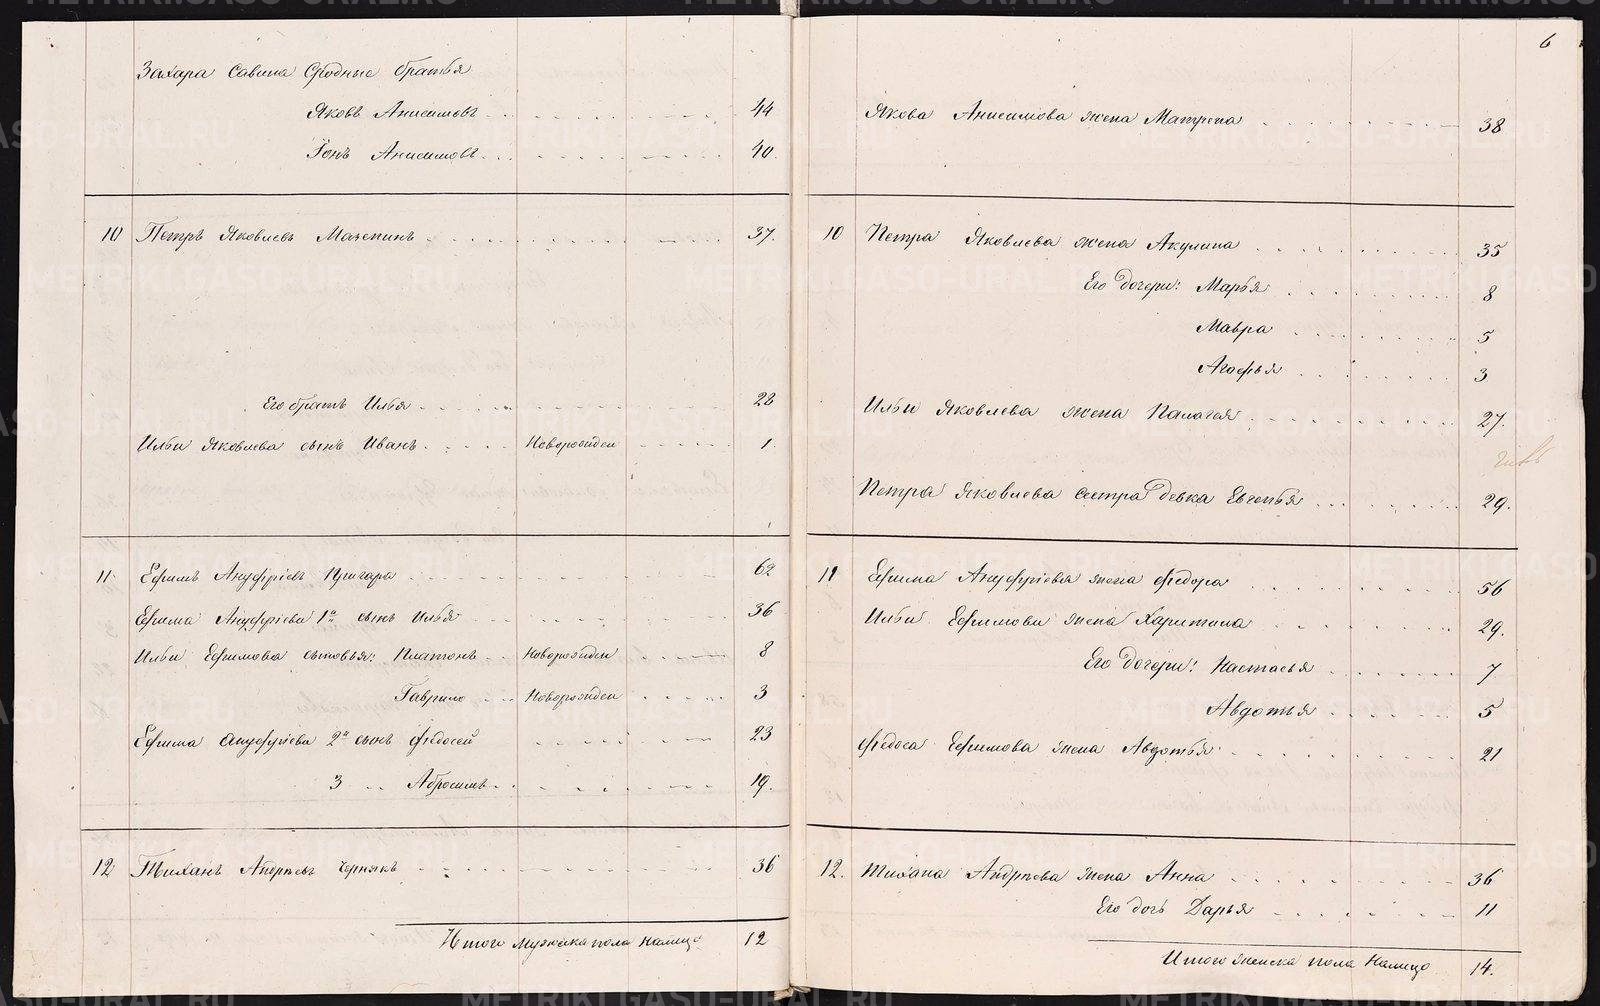 Захара Савина Сродные братья
Яковъ Анисимовъ 44
Іонъ Анисимовъ 40.
10 Петръ Яковлевъ Мазепинъ 37.
Его братъ Илья 28
Ильи Яковлева сынъ Иванъ Новорожден 1
11 Ефимъ Ануфріевъ 62
Ефима Ануфріева 1й сынъ Илья 36
Ильи Ефимова сыновья: Платонъ Новорожден 8
Гаврило Новорожден 3
Ефима Ануфріева 2й сынъ Федосей 23
3 „ Абросимъ 19.
12 Тиханъ Андреевъ Чернякъ 36
Итого мужеска пола налицо 12
6
Якова Анисимова жена Матрена 38
10 Петра Яковлева жена Акулина 35
Его дочери: Марья 8
Мавра 5
Агофья 3
Ильи Яковлева жена Палагея 27.
Петра Яковлева сестра девка Евгенья 29.
11 Ефима Ануфріева жена Федора 56
Ильи Ефимова жена Харитина 29.
Его дочери: Настасья 7
Авдотья 5
Федоса Ефимова жена Авдотья 21
12. Тихана Андреева жена Анна 36
Его дочь Дарья 11
Итого женска пола налицо 14.
METRIKI.GASO-URAL.RU